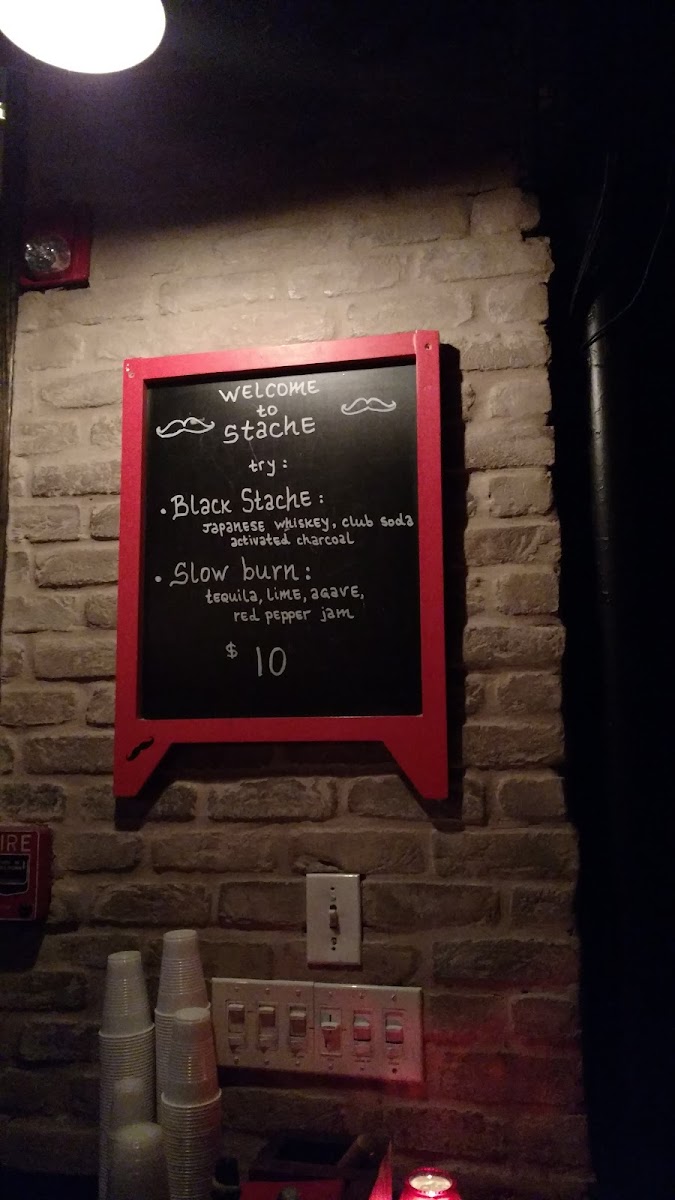 WELCOME
to
StachE
try:
• Black Stache:
Japanese whiskey, club soda
activated charcoal
• Slow burn:
tequila, lime, agave,
red pepper jam
$ 10
IRE